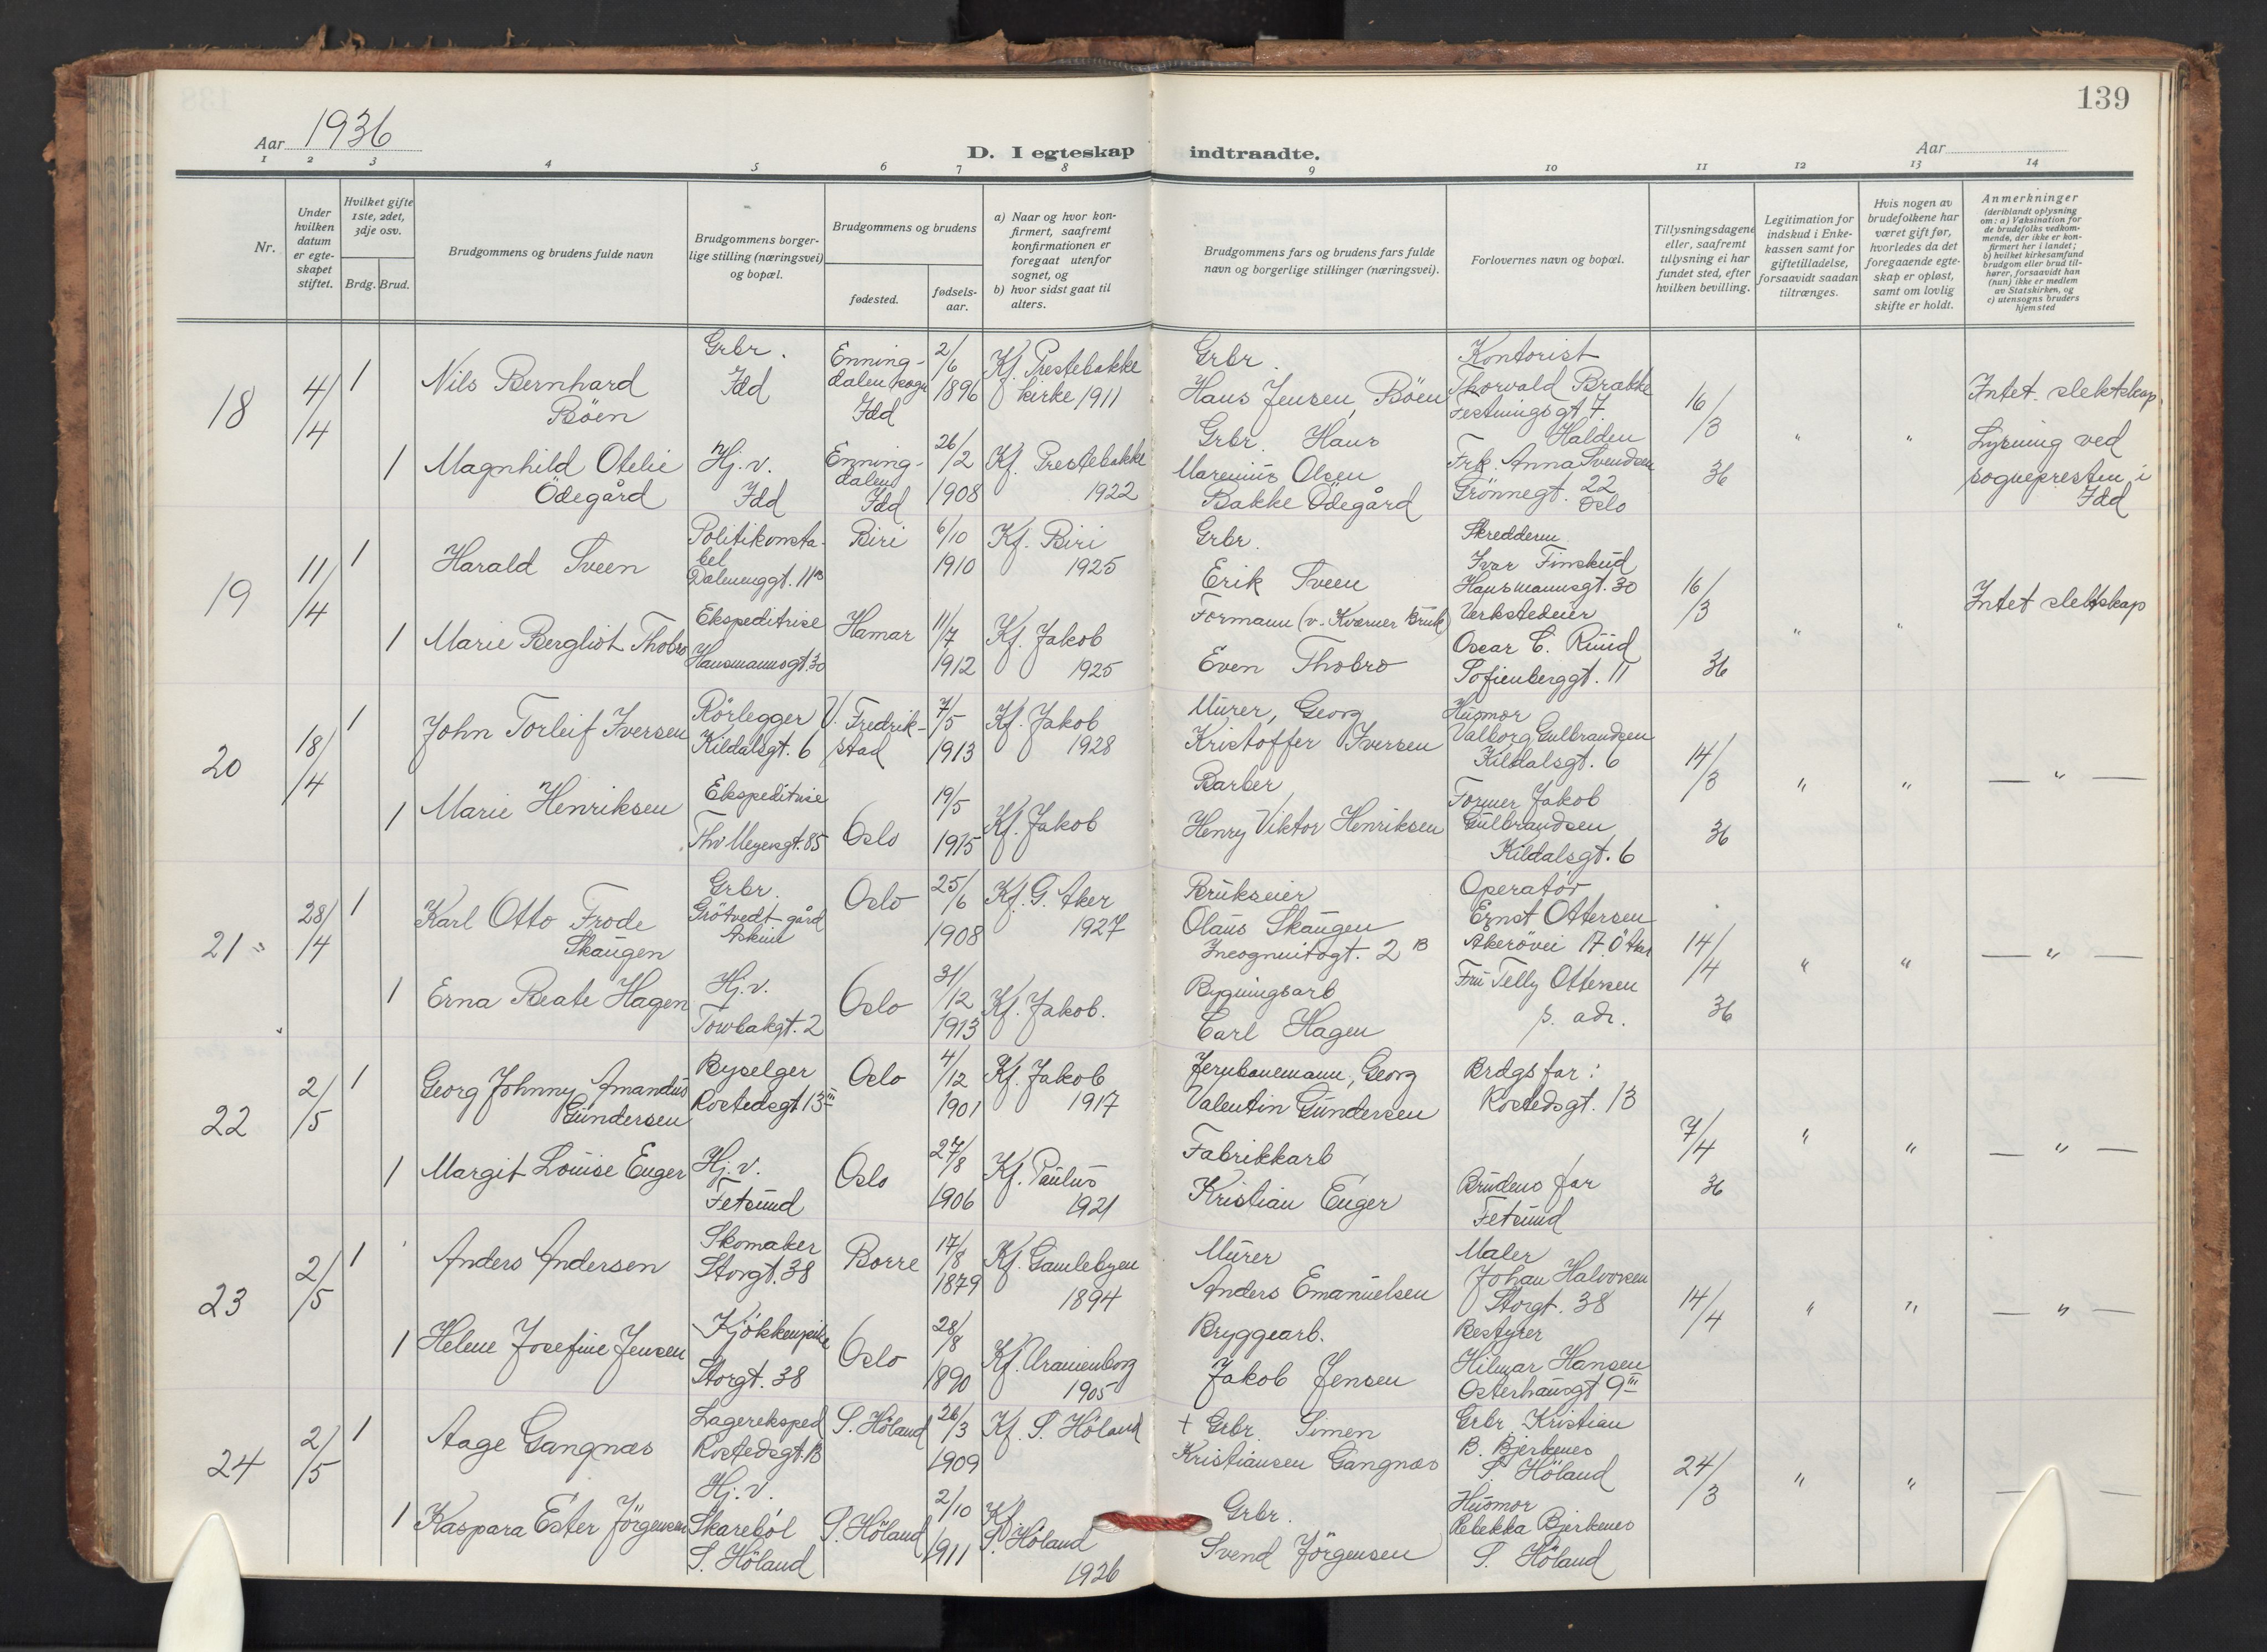 139
Aar 1936
D. I egteskap indtraadte.
Aar
1 2 3 4 5 6 7 8 9 10 11 12 13 14
Nr.
Under hvilken datum er egte-skapet stiftet.
Hvilket gifte 1ste, 2det, 3dje osv.
Brdg. Brud.
Brudgommens og brudens fulde navn
Brudgommens borger-lige stilling (næringsvei) og bopæl.
Brudgommens og brudens
fødested.
fødsels-aar.
a) Naar og hvor kon-firmert, saafremt konfirmationen er foregaat utenfor sognet, og
b) hvor sidst gaat til alters.
Brudgommens fars og brudens fars fulde navn og borgerlige stillinger (næringsvei).
Forlovernes navn og bopæl.
Tillysningsdagene eller, saafremt tillysning ei har fundet sted, efter hvilken bevilling.
Legitimation for indskud i Enke-kassen samt for giftetilladelse, forsaavidt saadan tiltrænges.
Hvis nogen av brudefolkene har været gift før, hvorledes da det foregaaende egte-skap er opløst, samt om lovlig skifte er holdt.
Anmerkninger
(deriblandt oplysning om: a) Vaksination for de brudefolks vedkom-mende, der ikke er kon-firmert her i landet; b) hvilket kirkesamfund brudgom eller brud til-hører, forsaavidt han (hun) ikke er medlem av Statskirken, og c) utensogns bruders hjemsted
18
4/4
1
Nils Bernhard
Böen
Grbr.
Idd
Enning-
dalen sogn
Idd
2/6
1896
Kf. Prestebakke
kirke 1911
Grbr.
Hans Jensen Böen
Kontorist
Thorvald Brække
Festningsgt 7
Halden
16/3
36
"
"
Intet slektskap.
Lysning ved
sognepresten i
Idd
1
Magnhild Otelie
Ödegård
Hj.v.
Idd
Enning-
dalen
Idd
26/2
1908
Kf. Prestebakke
1922
Grbr. Hans
Marenius Olsen
Bakke Ödegård
Frk. Anna Svendsen
Grönnegt. 22
Oslo
19
11/4
1
Harald Sveen
Politikonsta-
bel
Dælenenggt. 11 B
Biri
6/10
1910
Kf. Biri
1925
Grbr.
Erik Sveen
Skreddersv.
Ivar Finskud
Hausmannsgt. 30
16/3
36
"
"
Intet slektskap
1
Marie Bergliot Thobro
Ekspeditrise
Hausmannsgt. 30
Hamar
11/7
1912
Kf. Jakob
1925
Formann (v. Kværner Bruk)
Even Thobro
Verkstedeier
Oscar C. Ruud
Sofienberggt. 11
20
18/4
1
John Torleif Iversen
Rörlegger
Kildalsgt. 6
V. Fredrik-
stad
7/5
1913
Kf. Jakob
1928
Murer, Georg
Kristoffer Iversen
Husmor
Valborg Gulbrandsen
Kildalsgt. 6
14/3
36
"
"
— " —
1
Marie Henriksen
Ekspeditrise
Thv Meyersgt. 85
Oslo
19/5
1915
Kf. Jakob
Barber
Henry Viktor Henriksen
Former Jakob
Gulbrandsen
Kildalsgt. 6
21
28/4
1
Karl Otto Frode
Skaugen
Grbr.
Grötvedt gård
Askim
Oslo
25/6
1908
Kf. G. Aker
1927
Brukseier
Olaus Skaugen
Incognitogt. 2 B
Operatör
Ernst Ottersen
Akerövei 17. Ö Aker
14/4
36
"
"
— " —
1
Erna Beate Hagen
Hj.v.
Towbakgt. 2
Oslo
31/12
1913
Kf. Jakob.
Bygningsarb
Carl Hagen
Fru Telly Ottersen
s. adr.
22
2/5
1
Georg Johnny Amandus
Gundersen
Byselger
Rostedsgt 13 III
Oslo
4/12
1901
Kf. Jakob
1917
Jernbanemann, Georg
Valentin Gundersen
Brdgs far:
Rostedsgt. 13
7/4
36
"
"
— " —
1
Margit Louise Enger
Hj.v.
Fetsund
Oslo
27/8
1906
Kf. Paulus
1921
Fabrikkarb
Kristian Enger
Brudens far
Fetsund
23
2/5
1
Anders Andersen
Skomaker
Storgt. 38
Borre
17/8
1879
Kf. Gamlebyen
1894
Murer
Anders Emanuelsen
Maler
Johan Halvorsen
Storgt. 38
14/4
"
"
— " —
1
Helene Josefine Jensen
Kjökkenpike
Storgt. 38
Oslo
28/8
1890
Kf. Uranienborg
1905
Bryggearb.
Jakob Jensen
Bestyrer
Hilmar Hansen
Osterhausgt 9 III
24
2/5
1
Aage Gangnæs
Lagereksped
Rostedsgt. 13
S. Höland
26/3
1909
Kf. S. Höland
+ Grbr. Simen
Kristiansen Gangnæs
Grbr. Kristian
B. Bjerkenes
S. Höland
24/3
"
"
1
Kaspara Ester Jörgensen
Hj.v.
Skareböl
S. Höland
S. Höland
2/10
1911
Kf.
S. Höland
1926
Grbr.
Svend Jörgensen
Husmor
Rebekka Bjerkenes
S. Höland